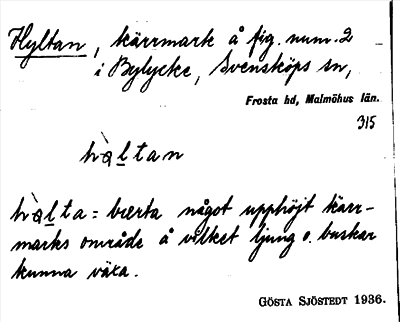 Hyltan, kärrmark å fig. num. 2
i Bylycke, Svensköps sn,
Frosta hd, Malmöhus län.
315
hàltan
hàlta = bœrta något upphöjt kärr-
marks område å vilket ljung o. buskar
kunna växa.
GÖSTA SJÖSTEDT 1936.